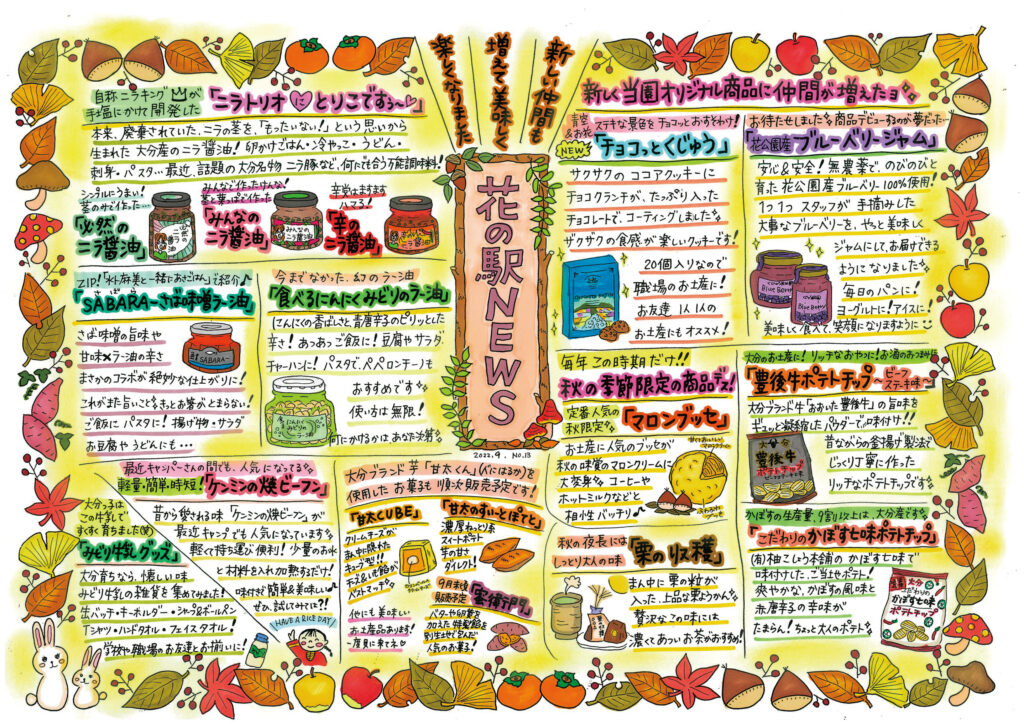 新しい仲間も
増えて美味しく
楽しくなりました
花の駅NEWS
2022.9. No.13
自称ニラキングが
手塩にかけて開発した
「ニラトリオ とりこですぅ〜」
本来、廃棄されていた、ニラの茎を、「もったいない!」という思いから
生まれた 大分産の ニラ醤油!卵かけごはん・冷やっこ・うどん・
刺身・パスタ…最近、話題の大分名物 ニラ豚など、何にでも合う万能調味料!
シンプルにうまい!
茎のみで作った…
「必然の
ニラ醤油」
みんなで作ったけんな!
茎と葉っぱで作った
「みんなの
ニラ醤油」
辛党はますます
ハマる!
「辛の
ニラ醤油」
ZIP!「水卜麻美と一緒にあさごはん」で紹介♪
「SABARA〜さば味噌ラー油」
さば味噌の旨味や
甘味×ラー油の辛さ
まさかのコラボが絶妙な仕上がりに!
これがまた旨いこと!きっとお箸がとまらない!
ご飯に パスタに! 揚げ物・サラダ
お豆腐や うどんにも…
SABARA
今までなかった、幻のラー油
「食べるにんにくみどりのラー油」
にんにくの香ばしさと、青唐辛子のピリッとした
辛さ! あつあつご飯に! 豆腐や サラダ
チャーハンに! パスタで、ペペロンチーノも
おすすめです
使い方は 無限!
何にかけるかは あなた次第
新しく当園オリジナル商品に仲間が増えたョ
青空
&お花
ステキな景色を チョコッとおすそわけ!
NEW
「チョコっとくじゅう」
サクサクの ココアクッキーに
チョコクランチが、たっぷり入った
チョコレートで、コーティングしました
ザクザクの食感が 楽しいクッキーです!
20個入りなので
職場のお土産に!
お友達 1人1人の
お土産にもオススメ!
お待たせしました 商品デビューするのが夢だった…
「花公園産ブルーベリージャム」
安心&安全!無農薬で、のびのびと
育った 花公園産ブルーベリー100%使用!
1つ1つ スタッフが 手摘みした
大事なブルーベリーを、やっと美味しく
ジャムにして、お届けできる
ようになりました
毎日の パンに!
ヨーグルトに!アイスに!
美味しく食べて、笑顔になりますように
Blue Berry
Blue Berry
毎年 この時期だけ!!
秋の季節限定の商品デス!
定番人気の
秋限定
「マロンブッセ」
お土産に人気のブッセが
秋の味覚のマロンクリームに
大変身 コーヒーや
ホットミルクなどと
相性バッチリ♪
秋の夜長には
しっとり大人の味
「栗の収穫」
まん中に 栗の粒が
入った、上品な栗ようかん
贅沢なこの味には
濃くてあつい お茶がおすすめ!
大分のお土産に! リッチなおやつに!お酒のおつまみに
「豊後牛ポテトチップ〜ビーフステーキ味〜」
大分ブランド牛「おおいた豊後牛」の旨味を
ギュッと凝縮したパウダーで味付け!!
昔ながらの釜揚げ製法で
じっくり丁寧に作った
リッチなポテトチップです
大分
豊後牛
ポテトチップ
かぼすの生産量、9割以上は、大分産です
「こだわりのかぼす七味ポテトチップ」
(有)柚こしょう本舗の かぼす七味で
味付けした、ご当地ポテト!
爽やかな、かぼすの風味と
赤唐辛子の辛味が
たまらん! ちょっと大人のポテト
大分
こだわりの
かぼす七味
ポテトチップ
最近 キャンパーさんの間でも、人気になってる
軽量・簡単・時短!
「ケンミンの焼ビーフン」
昔から愛される味「ケンミンの焼ビーフン」が
最近 キャンプでも人気になっています
軽くて持ち運び便利! 少量のお水
と材料を入れ加熱するだけ!
味付きで簡単&美味しい♪
ぜひ、試してみて?!!
HAVE A RICE DAY!
大分っ子は
この牛乳で
すくすく育ちました(笑)
「みどり牛乳グッズ」
大分育ちなら、懐しい味
みどり牛乳の雑貨を集めてました!
缶バッチ・キーホルダー・シャープ&ボールペン
Tシャツ・ハンドタオル・フェイスタオル!
学校や職場のお友達とお揃いに!
大分ブランド芋「甘太くん」(べにはるか)を
使用した お菓子も 順次販売予定です!
「甘太CUBE」
クリームチーズが
まん中に隠れた
キューブ型!!
チーズ&いも餡が
ベストマッチ
他にも美味しい
お土産品あります!
一度見に来てネ
「甘太のすいーとぽてと」
濃厚ねっとり系
スイートポテト
芋の甘さ
ダイレクト!
9月末頃
販売予定
バターや卵黄を
加えた特製餡を
別生地で包んだ
人気のお菓子!